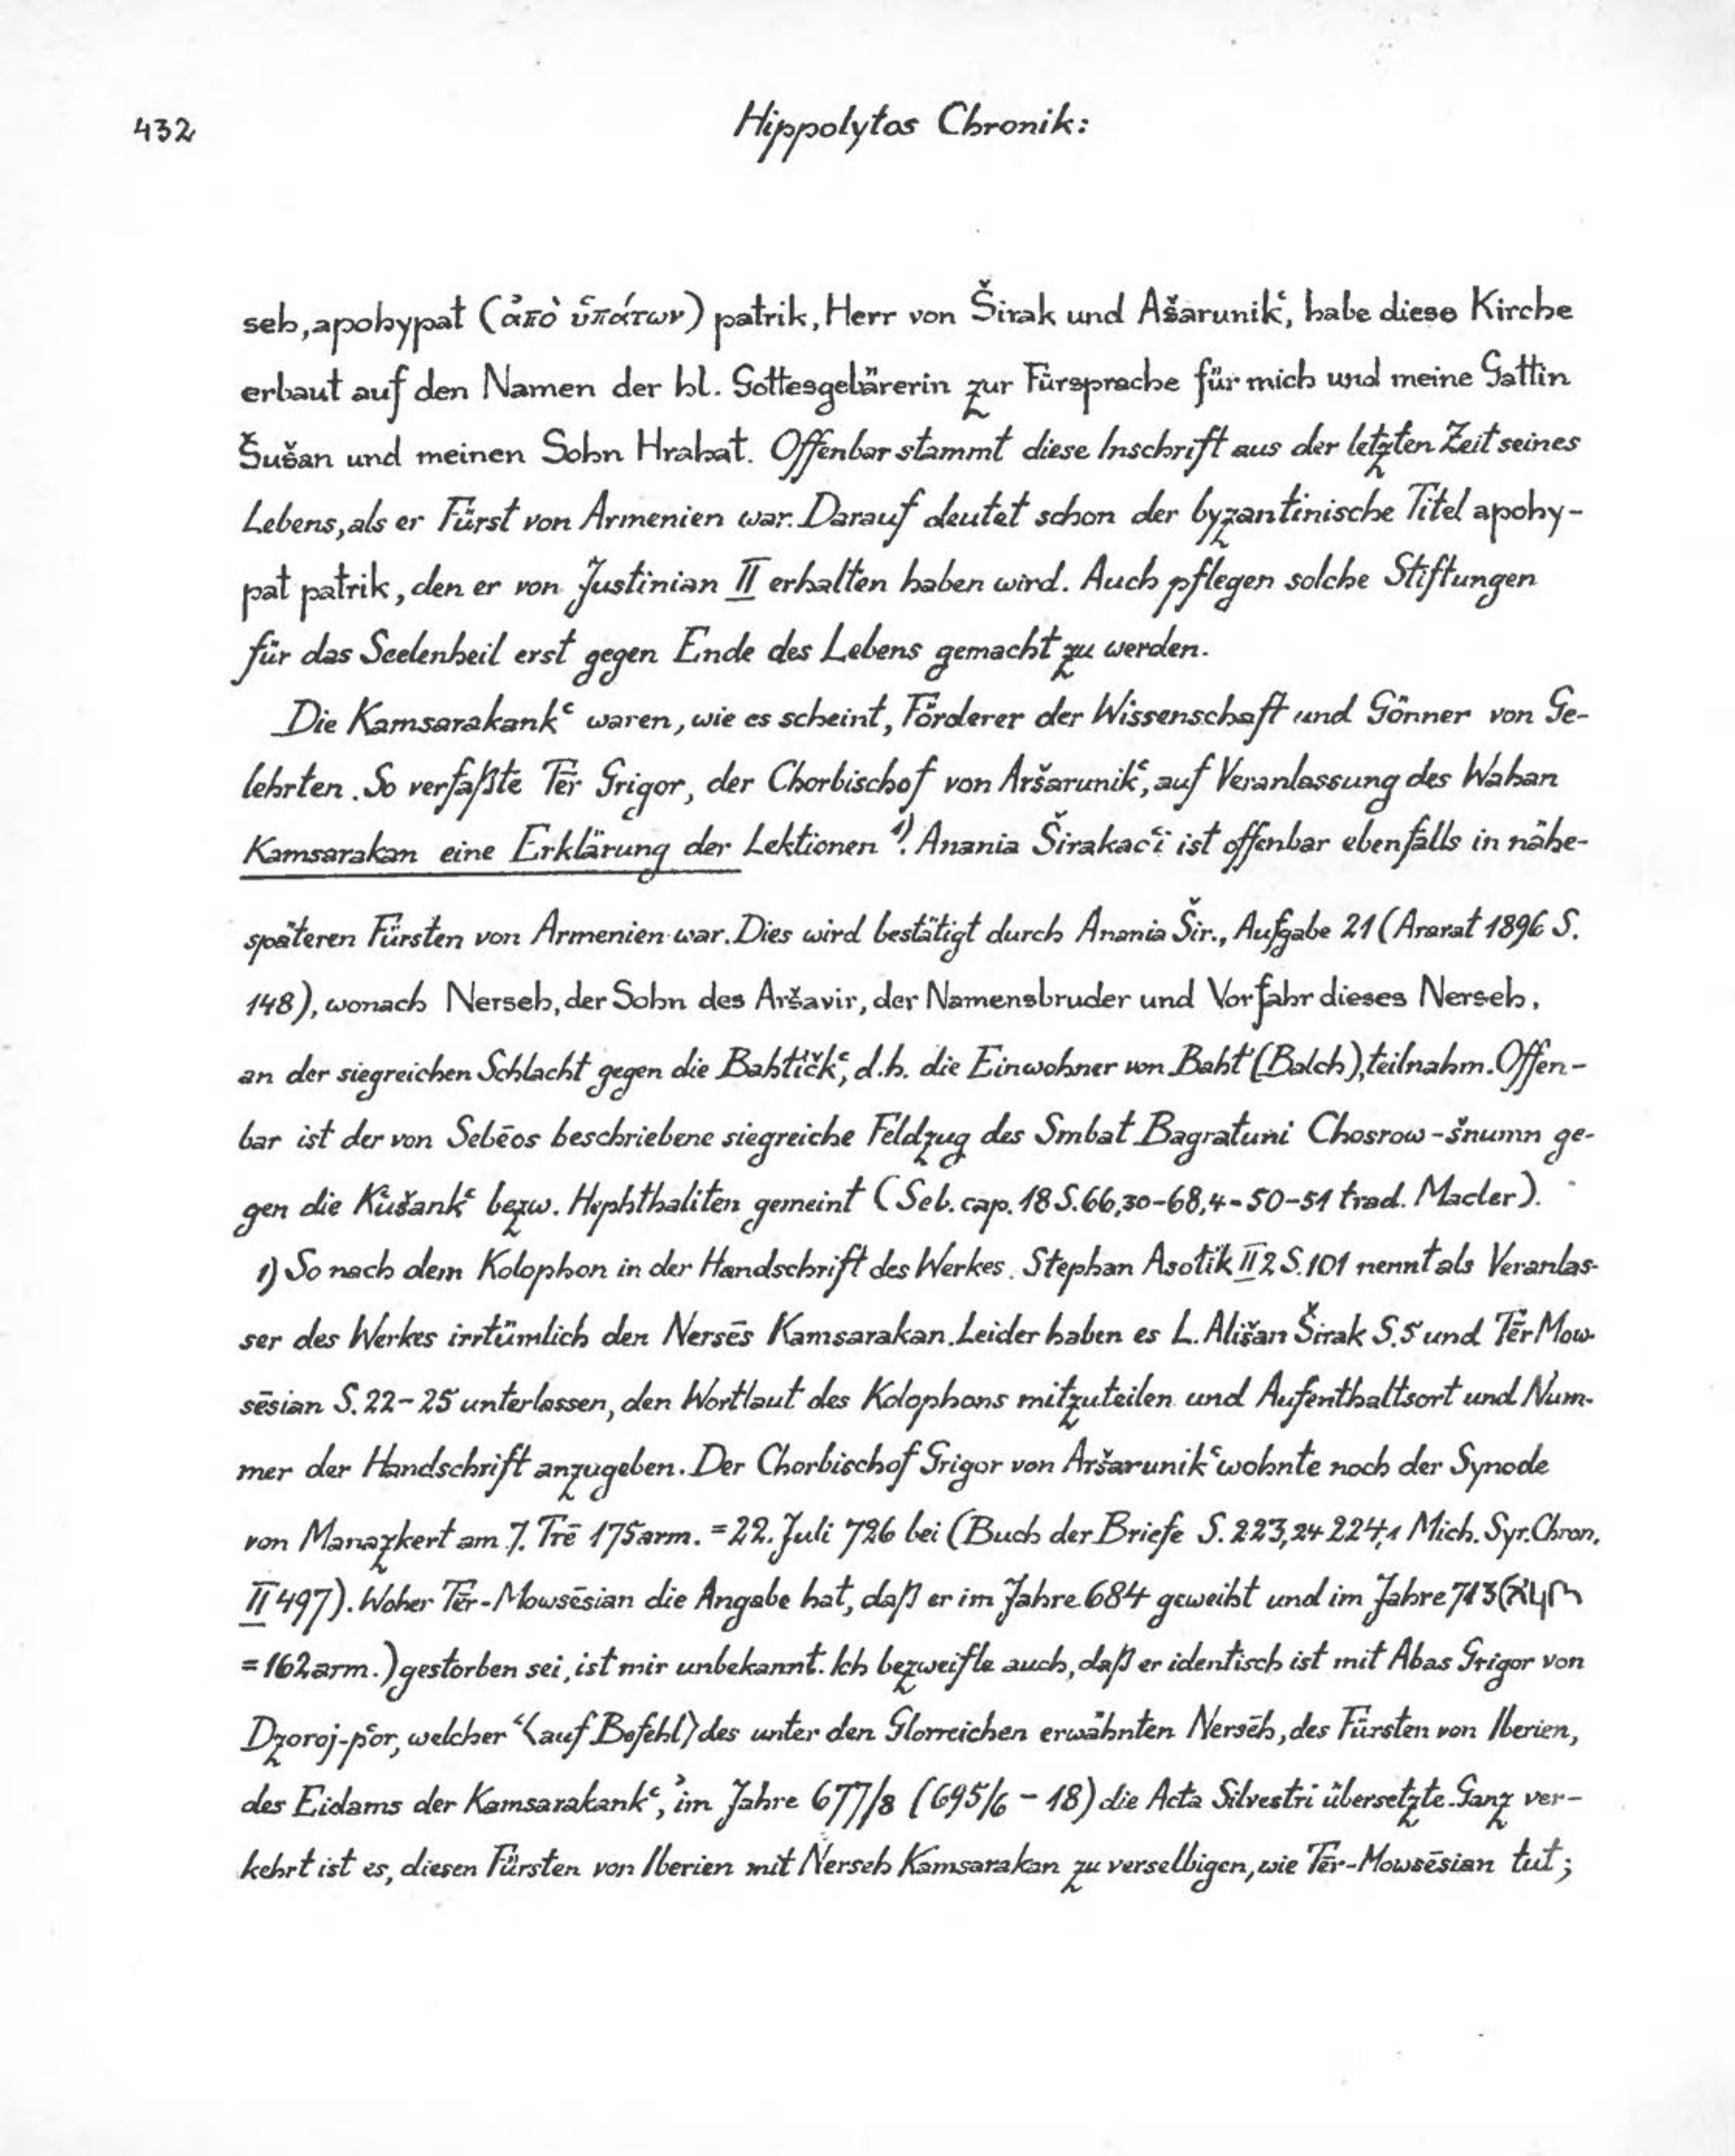 432
Hippolytos Chronik:
seh, apohypat (ἀπὸ ὑπάτων) patrik, Herr von Širak und Ašarunikʿ, habe diese Kirche
erbaut auf den Namen der hl. Gottesgebärerin zur Fürsprache für mich und meine Gattin
Šušan und meinen Sohn Hrahat. Offenbar stammt diese Inschrift aus der letzten Zeit seines
Lebens, als er Fürst von Armenien war. Darauf deutet schon der byzantinische Titel apohy-
pat patrik, den er von Justinian II erhalten haben wird. Auch pflegen solche Stiftungen
für das Seelenheil erst gegen Ende des Lebens gemacht zu werden.
Die Kamsarakankʿ waren, wie es scheint, Förderer der Wissenschaft und Gönner von Ge-
lehrten. So verfaßte Tēr Grigor, der Chorbischof von Aršarunikʿ, auf Veranlassung des Wahan
Kamsarakan eine Erklärung der Lektionen 1). Anania Širakacʿi ist offenbar ebenfalls in nähe-
späteren Fürsten von Armenien war. Dies wird bestätigt durch Anania Šir., Aufgabe 21 (Ararat 1896 S.
148), wonach Nerseh, der Sohn des Aršavir, der Namensbruder und Vorfahr dieses Nerseh,
an der siegreichen Schlacht gegen die Bahtičkʿ, d.h. die Einwohner von Baht (Balch), teilnahm. Offen-
bar ist der von Sebēos beschriebene siegreiche Feldzug des Smbat Bagratuni Chosrow-šnumn ge-
gen die Kʿušankʿ bezw. Hephthaliten gemeint (Seb. cap. 18 S. 66,30-68,4 = 50-51 trad. Macler).
1) So nach dem Kolophon in der Handschrift des Werkes. Stephan Asołik II 2 S. 101 nennt als Veranlas-
ser des Werkes irrtümlich den Nersēs Kamsarakan. Leider haben es L. Ališan Širak S. 5 und Tēr Mow-
sēsian S. 22-25 unterlassen, den Wortlaut des Kolophons mitzuteilen und Aufenthaltsort und Num-
mer der Handschrift anzugeben. Der Chorbischof Grigor von Aršarunikʿ wohnte noch der Synode
von Manazkert am 7. Trē 175 arm. = 22. Juli 726 bei (Buch der Briefe S. 223,24 224,1 Mich. Syr. Chron.
II 497). Woher Tēr-Mowsēsian die Angabe hat, daß er im Jahre 684 geweiht und im Jahre 713 (
= 162 arm.) gestorben sei, ist mir unbekannt. Ich bezweifle auch, daß er identisch ist mit Abas Grigor von
Dzoroj-pʿor, welcher ‘⟨auf Befehl⟩ des unter den Glorreichen erwähnten Nersēh, des Fürsten von Iberien,
des Eidams der Kamsarakankʿ,’ im Jahre 677/8 (695/6 - 18) die Acta Silvestri übersetzte. Ganz ver-
kehrt ist es, diesen Fürsten von Iberien mit Nerseh Kamsarakan zu verselbigen, wie Tēr-Mowsēsian tut;